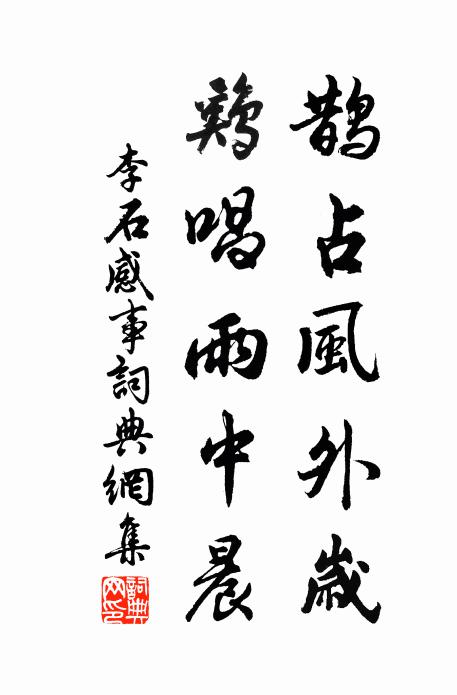 鵲占風外歲
鷄唱雨中晨
李石感事詞典網集
詞典網印